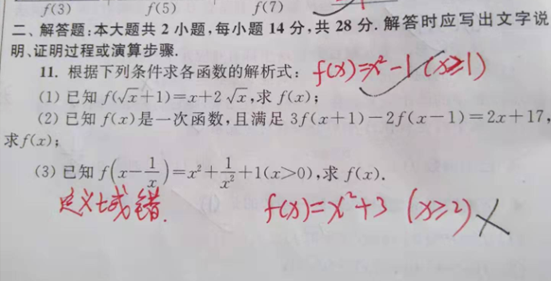 f(3) f(5) f(7)
二、解答题:本大题共 2 小题,每小题 14 分,共 28 分.解答时应写出文字说
明、证明过程或演算步骤.
11. 根据下列条件求各函数的解析式: f(x)=x²-1 (x≥1)
(1) 已知 f(√x+1)=x+2√x,求 f(x);
(2) 已知 f(x)是一次函数,且满足 3f(x+1)-2f(x-1)=2x+17,
求f(x);
(3) 已知 f(x-1/x)=x²+1/x²+1(x>0),求 f(x).
定义域错. f(x)=x²+3 (x≥2) ×